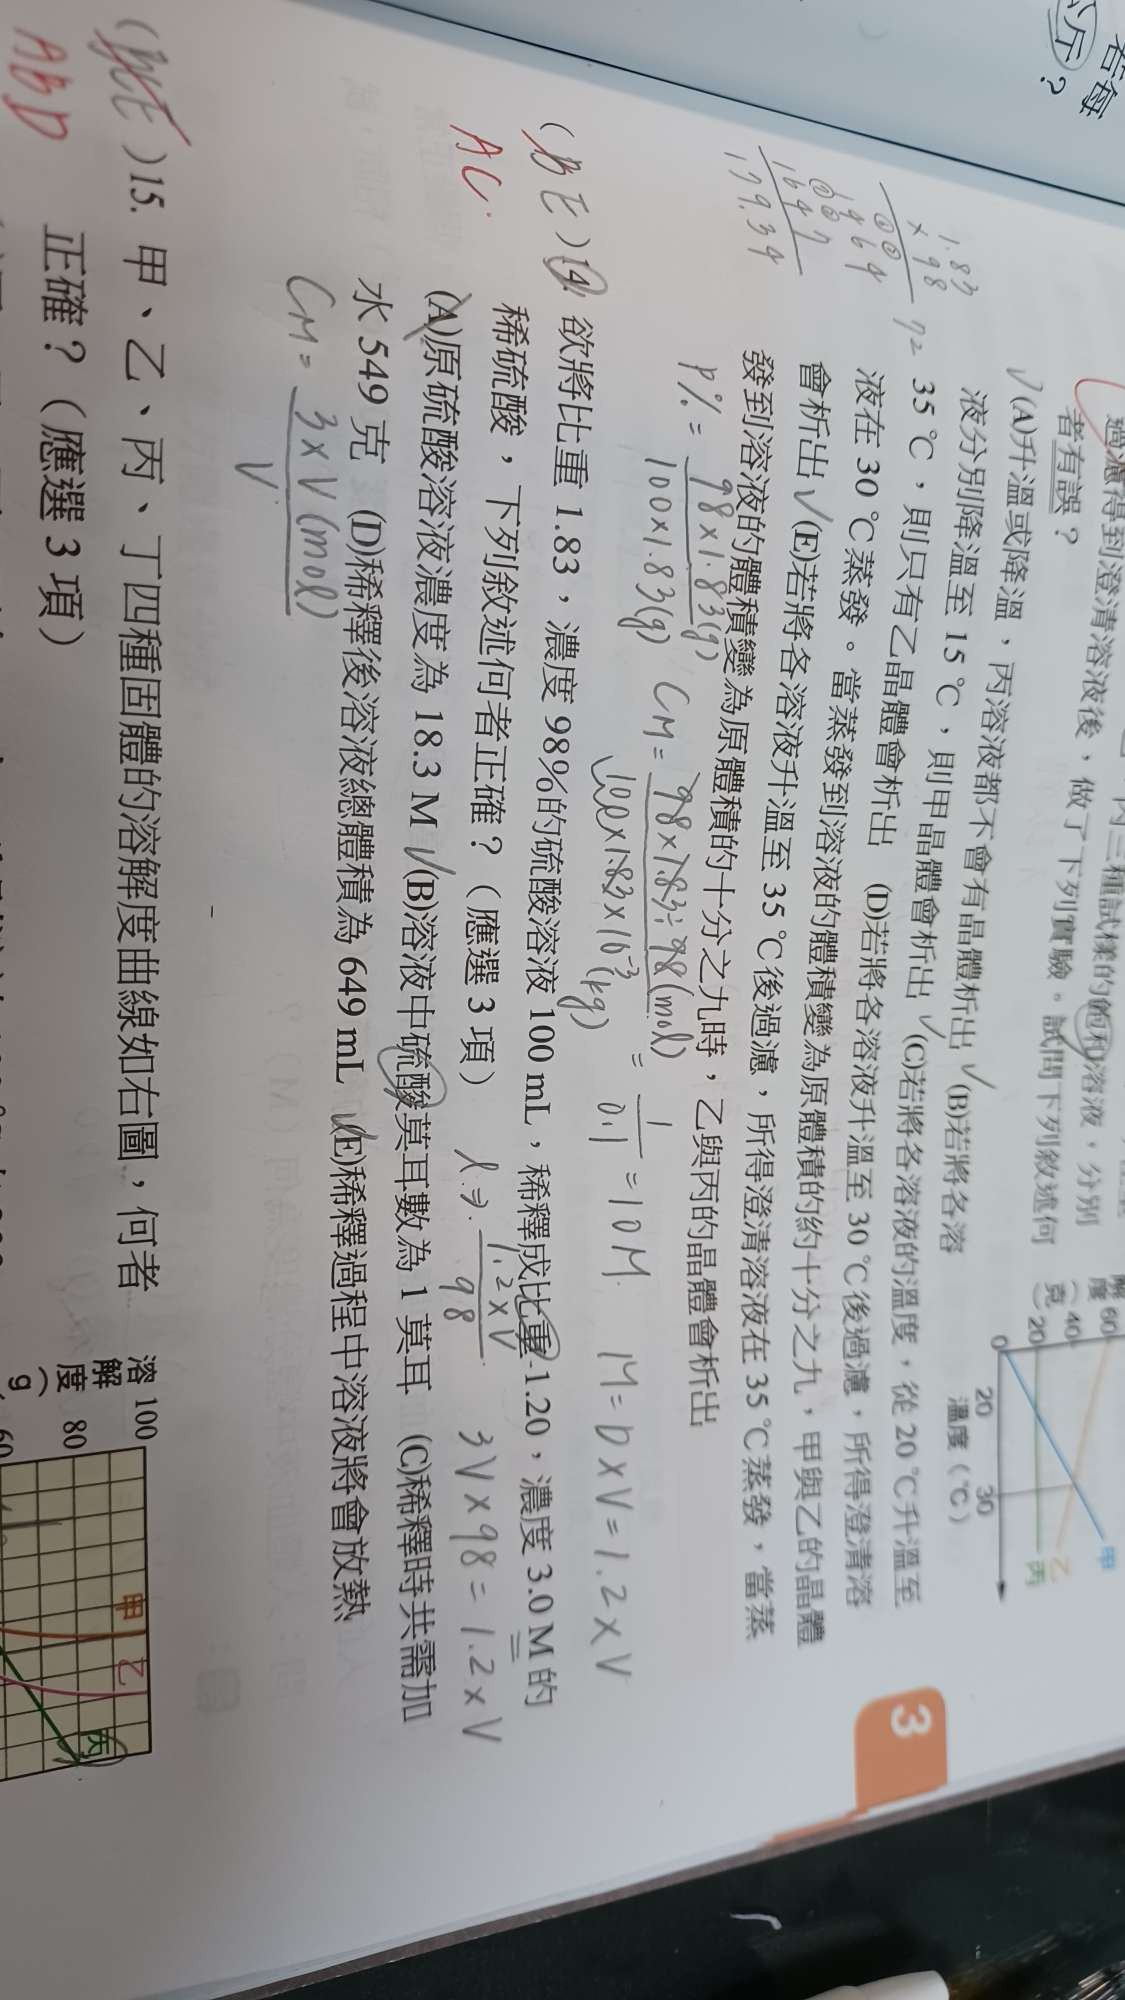 若每
公斤？
過濾得到澄清溶液後，做了下列實驗。試問下列敘述何
丙三種試樣的飽和溶液，分別
者有誤？
(A)升溫或降溫，丙溶液都不會有晶體析出 (B)若將各溶
液分別降溫至 15 ℃，則甲晶體會析出 (C)若將各溶液的溫度，從 20 ℃升溫至
35 ℃，則只有乙晶體會析出 (D)若將各溶液升溫至 30 ℃後過濾，所得澄清溶
液在 30 ℃蒸發。當蒸發到溶液的體積變為原體積的約十分之九，甲與乙的晶體
會析出 (E)若將各溶液升溫至 35 ℃後過濾，所得澄清溶液在 35 ℃蒸發，當蒸
發到溶液的體積變為原體積的十分之九時，乙與丙的晶體會析出
解
度 60
（ 40
克 20
） 0
20 30
溫度（℃）
甲
乙
丙
3
1.83
× 98
1464
1647
179.34
P% = 98×1.83(g) / 100×1.83(g)
CM = 98×1.83÷98(mol) / 100×1.83×10⁻³(kg) = 1 / 0.1 = 10M
M = D×V = 1.2×V
(BE)14. 欲將比重 1.83，濃度 98%的硫酸溶液 100 mL，稀釋成比重 1.20，濃度 3.0 M 的
AC
稀硫酸，下列敘述何者正確？（應選 3 項）
l ⇒ 1.2×V / 98
3V×98 = 1.2×V
(A)原硫酸溶液濃度為 18.3 M (B)溶液中硫酸莫耳數為 1 莫耳 (C)稀釋時共需加
水 549 克 (D)稀釋後溶液總體積為 649 mL (E)稀釋過程中溶液將會放熱
CM = 3×V(mol) / V
( )15. 甲、乙、丙、丁四種固體的溶解度曲線如右圖，何者
ABD
正確？（應選 3 項）
溶 100
解
度 80
（
g 60
甲
乙
丙